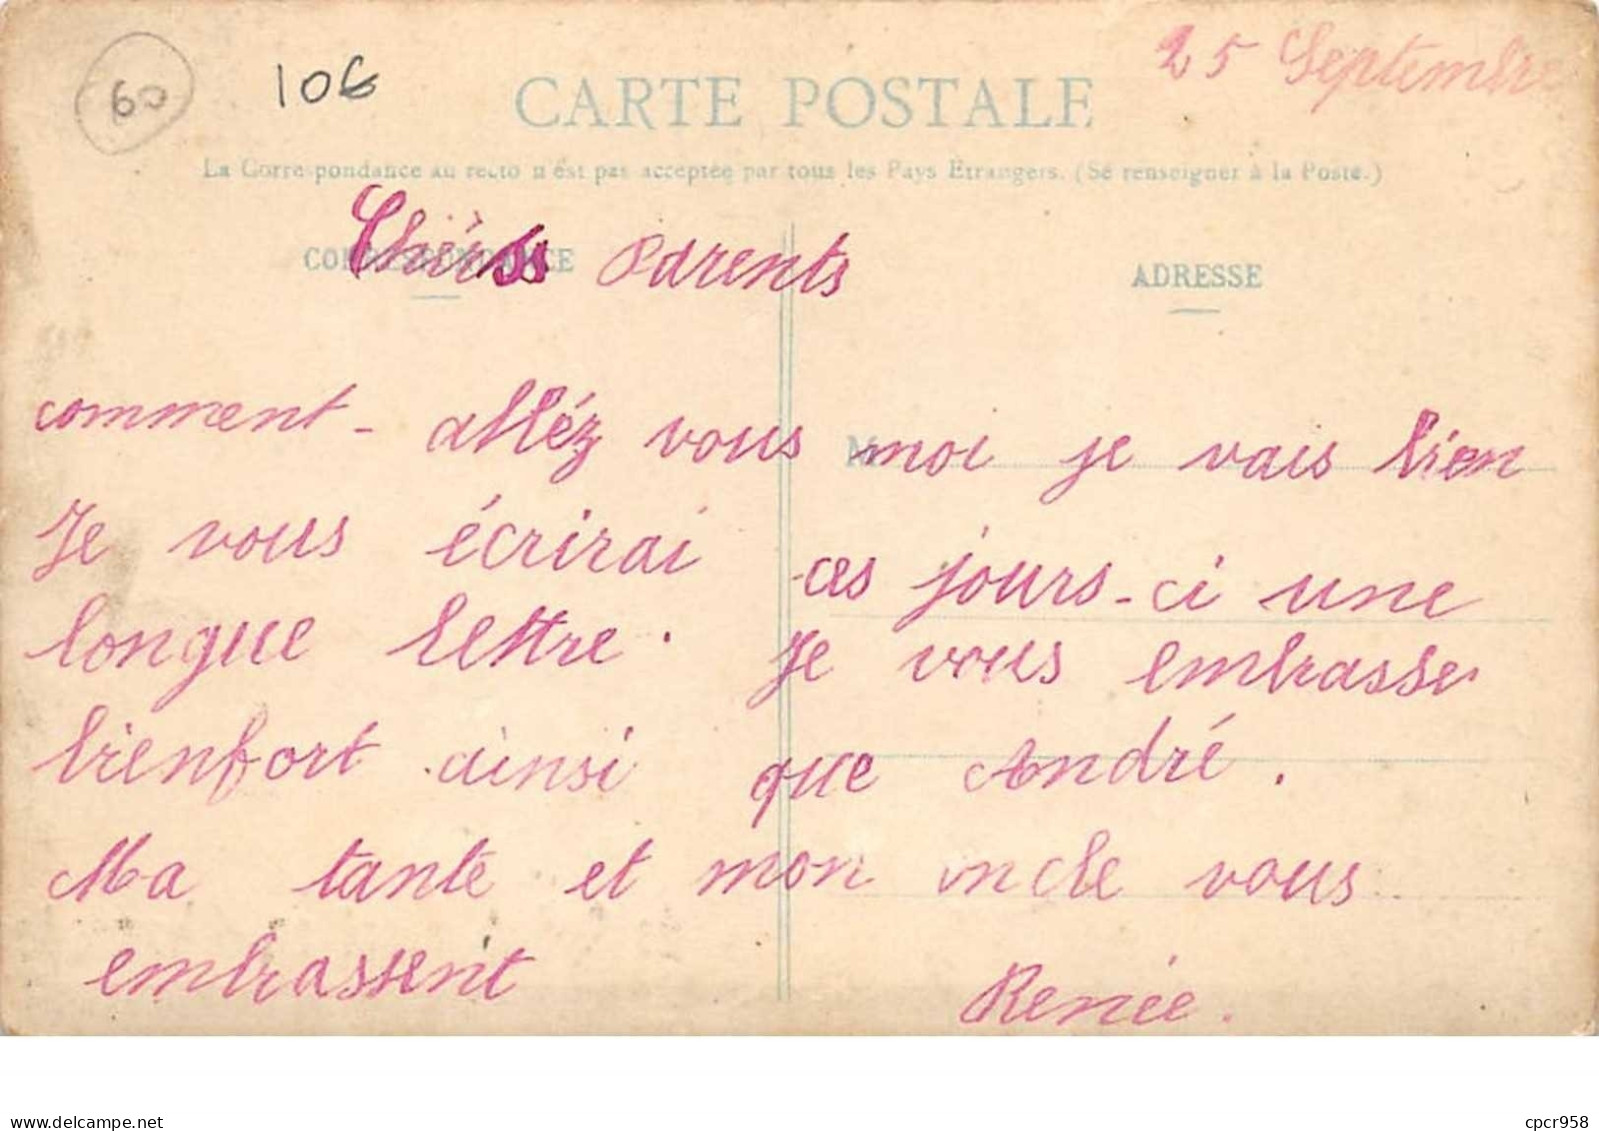 60
10€
25 Septembre
CARTE POSTALE
La Correspondance au recto n'est pas acceptée par tous les Pays Etrangers. (Se renseigner à la Poste.)
CORRESPONDANCE
ADRESSE
Chèrs Parents
comment - alléz vous moi je vais bien
Je vous écrirai ces jours-ci une
longue lettre. Je vous embrasse
bienfort ainsi que André.
Ma tante et mon oncle vous
embrassent
Renée.
delcampe.net
cpcr958